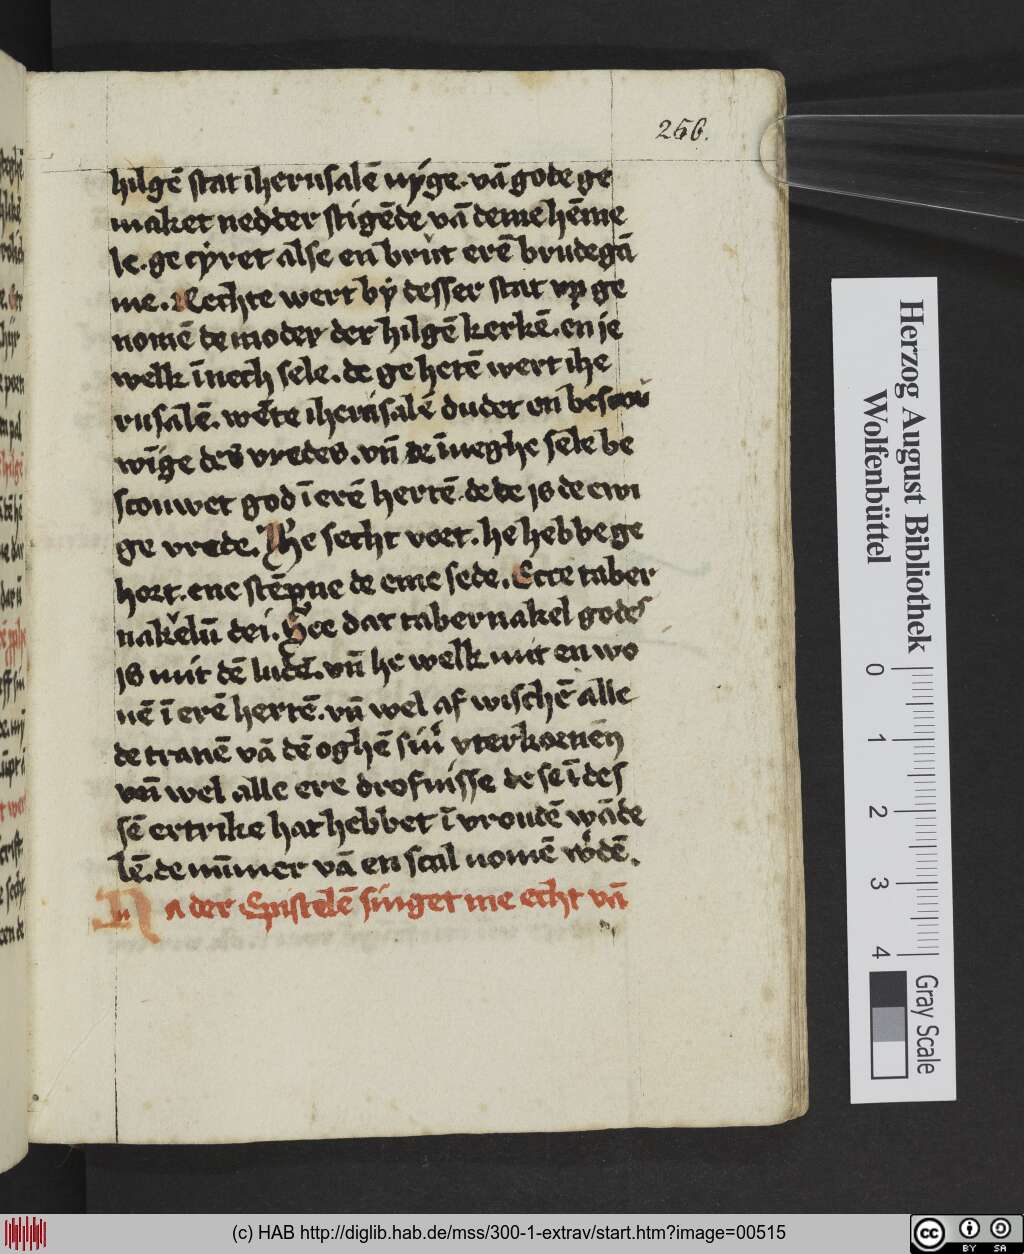 256.
hilgē stat iherusalē nÿge. vā gode ge
maket nedder stigēde vā deme hēme
le. ge cÿret alse en brut erē brudegā
me. Rechte wert bÿ desser stat vp ge
nomē de moder der hilgē kerkē. en ie
welk īnech sele. de ge hetē wert ihe
rusalē. wēte iherusalē dudet en bescou
wīge des vredes. vn̄ de īneghe sele be
scouwet god ī erē hertē. de de is de ewi
ge vrede. The secht voet. he hebbe ge
hort. ene stēpne de eme sede. Ecce taber
nakelū dei. See dat tabernakel godes
is mit dē ludē. vn̄ he welk mit en wo
nē ī erē hertē. vn̄ wel af wischē alle
de tranē vā dē oghē sin̄ vterkoenen
vn̄ wel alle ere drofnisse de se ī des
sē ertrike hat hebbet ī vroudē wāde
lē. de nūmer vā en scal nomē w'dē.
Na der Epistelē singet me echt vā
Herzog August Bibliothek
Wolfenbüttel
0 1 2 3 4
Gray Scale
(c) HAB http://diglib.hab.de/mss/300-1-extrav/start.htm?image=00515
cc BY SA